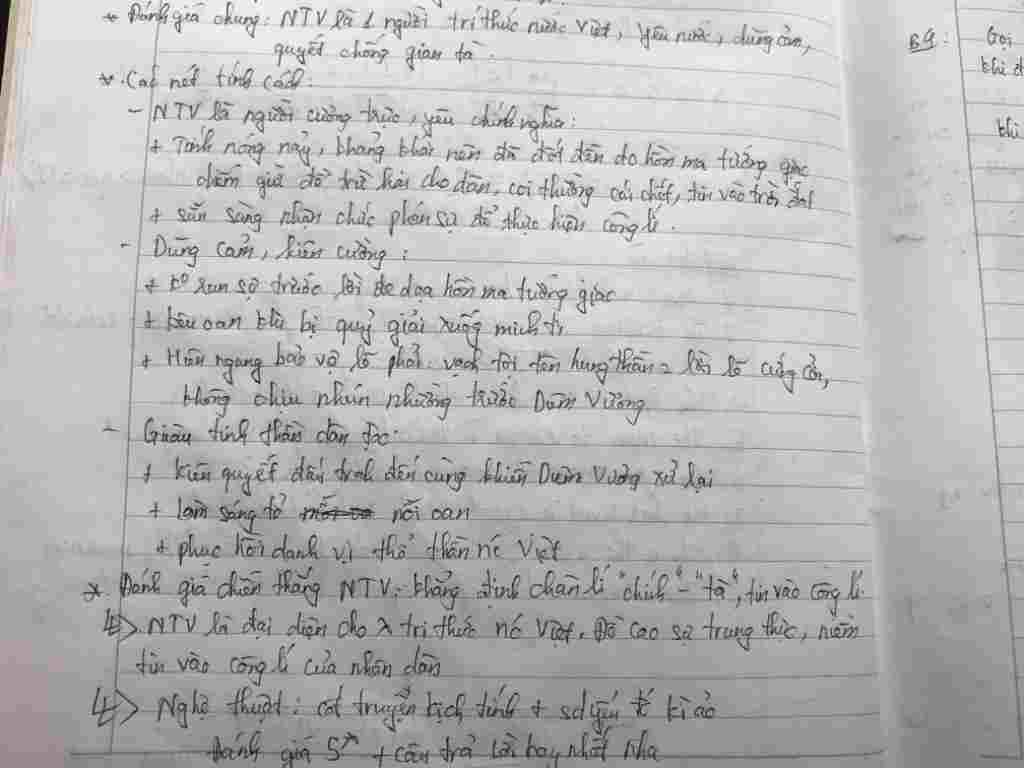 * Đánh giá chung: NTV là 1 người trí thức nước Việt, yêu nước, dũng cảm,
quyết chống gian tà.
* Các nét tính cách:
- NTV là người cường trực, yêu chính nghĩa:
+ Tính nóng nảy, khảng khái nên đã đốt đền do hồn ma tướng giặc
chiếm giữ để trừ hại cho dân, coi thường cái chết, tin vào trời đất
+ sẵn sàng nhận chức phán sự để thực hiện công lí.
- Dũng cảm, kiên cường:
+ ko run sợ trước lời đe dọa hồn ma tướng giặc
+ kêu oan khi bị quỷ giải xuống minh ti
+ Hiên ngang bảo vệ lẽ phải. vạch tội tên hung thần = lời lẽ cứng cỏi,
không chịu nhún nhường trước Diêm Vương
- Giàu tinh thần dân tộc:
+ kiên quyết đấu tranh đến cùng khiến Diêm Vương xử lại
+ làm sáng tỏ nỗi oan
+ phục hồi danh vị thổ thần nc Việt
* Đánh giá chiến thắng NTV: khẳng định chân lí "chính" - "tà", tin vào công lí.
=> NTV là đại diện cho λ tri thức nc Việt. Đề cao sự trung thực, niềm
tin vào công lí của nhân dân
=> Nghệ thuật: cốt truyện kịch tính + sd yếu tố kì ảo
Đánh giá 5* + câu trả lời hay nhất nha
B9:
Gọi
khi đ
khi